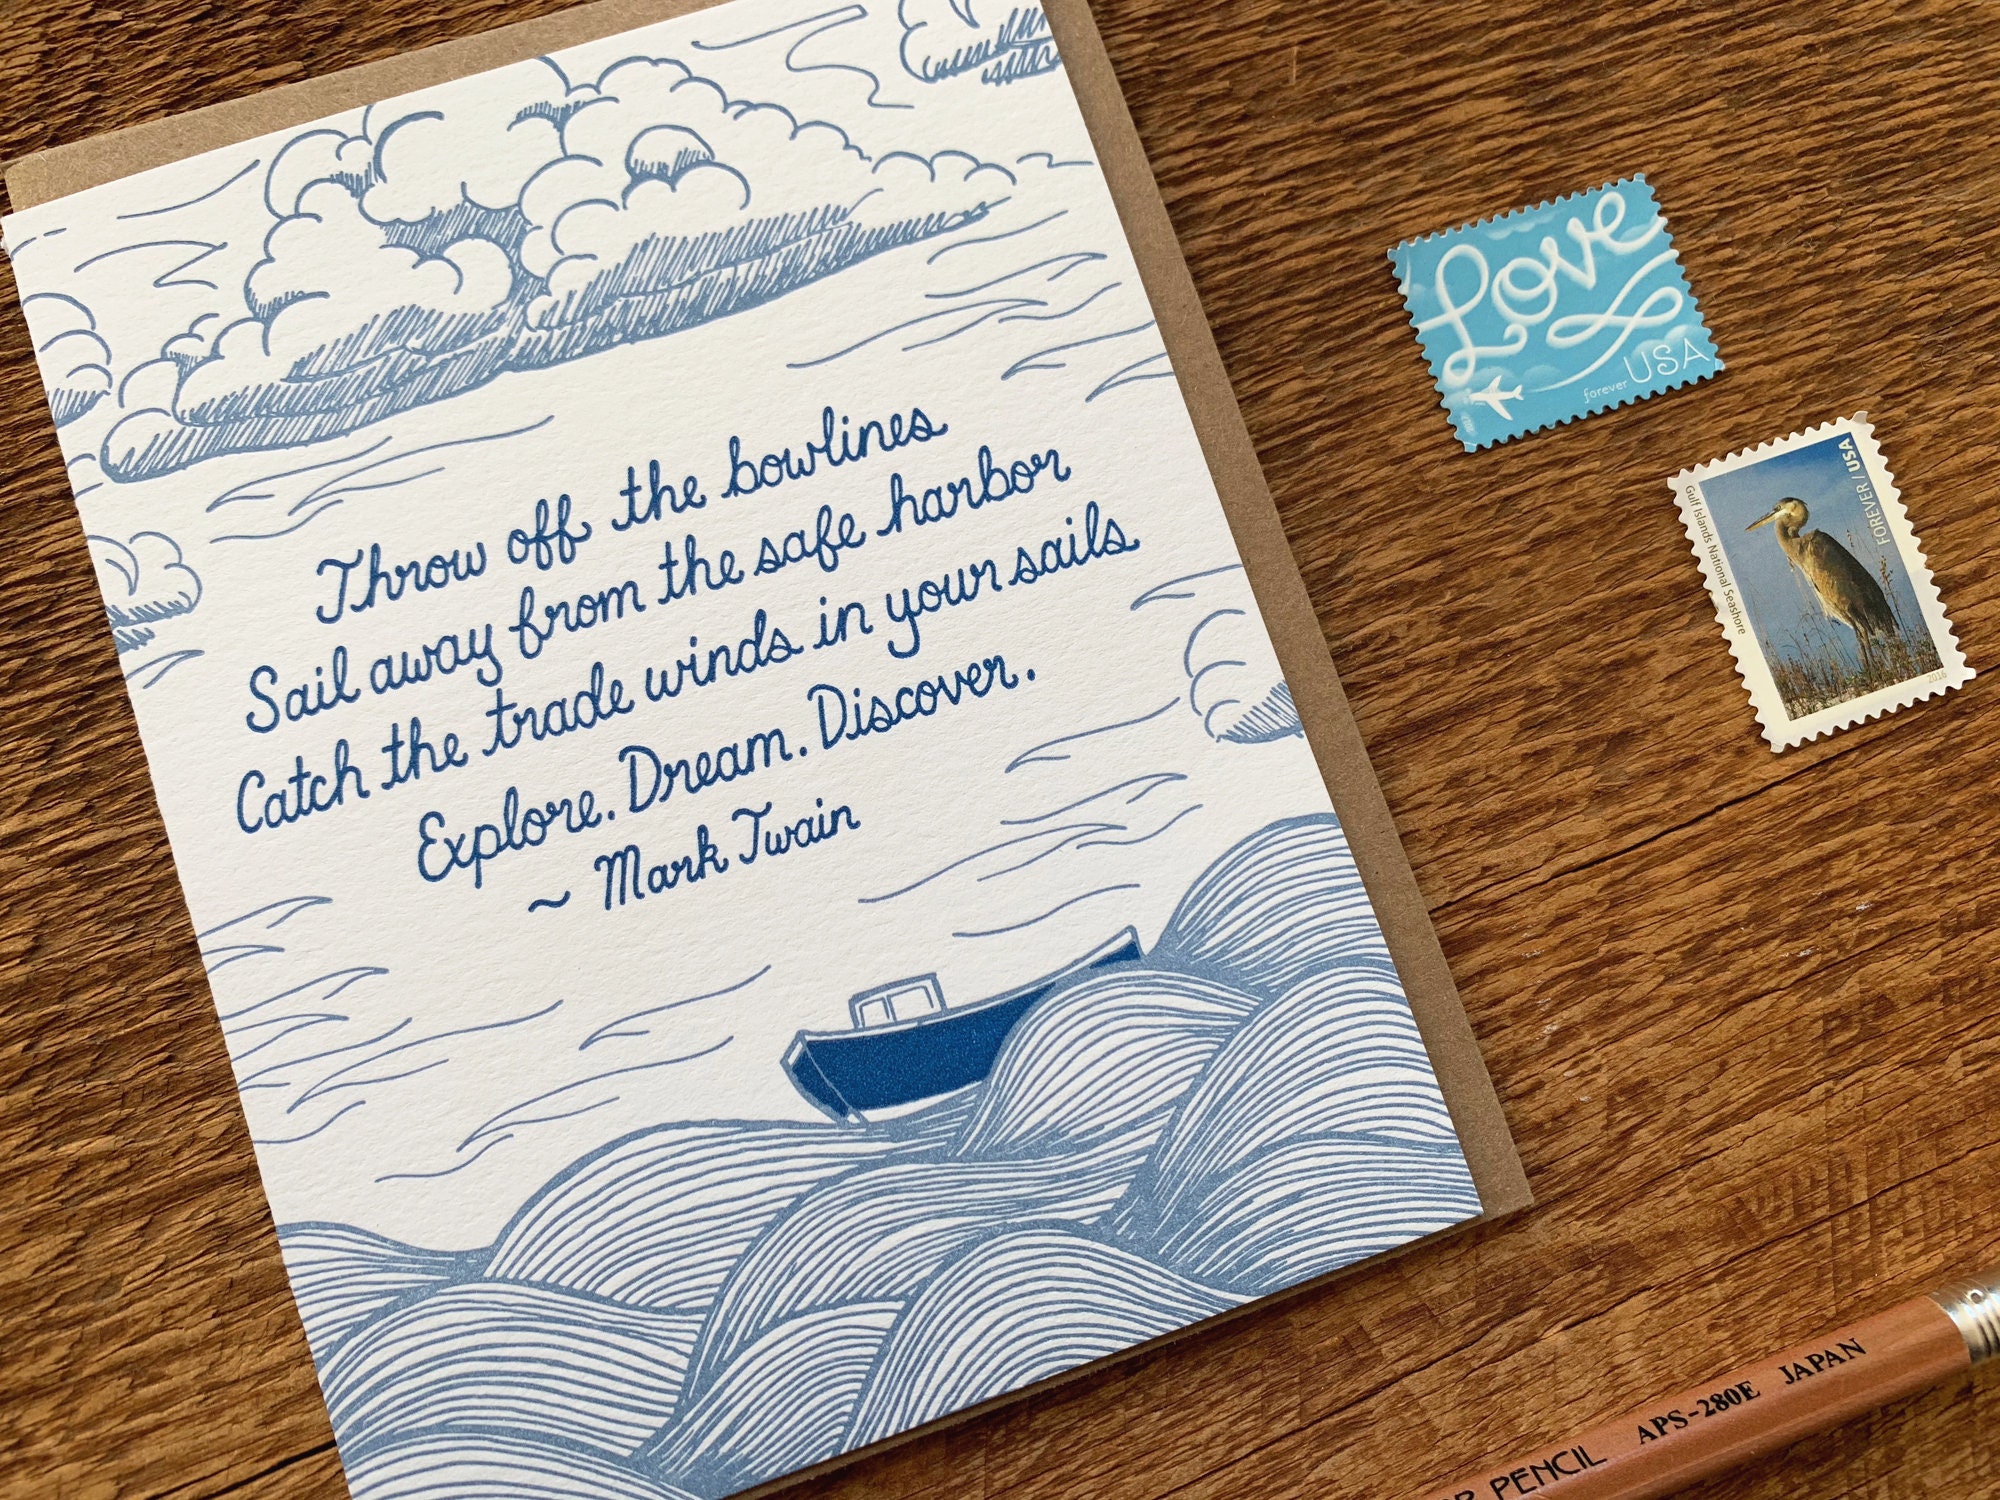 Throw off the bowlines
Sail away from the safe harbor
Catch the trade winds in your sails
Explore. Dream. Discover.
~ Mark Twain
Love
forever USA
Gulf Islands National Seashore
FOREVER / USA
2016
PENCIL APS-280E JAPAN